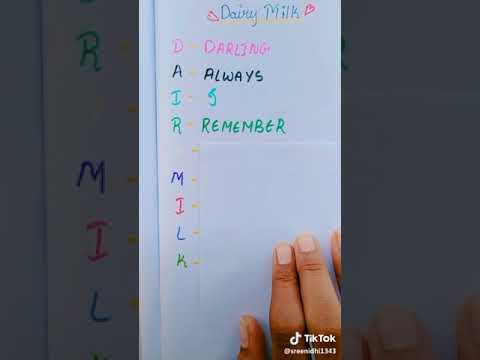 Dairy Milk
D - DARLING
A - ALWAYS
I - I
R - REMEMBER
-
M -
I -
L -
K -
TikTok
@sreenidhi1343